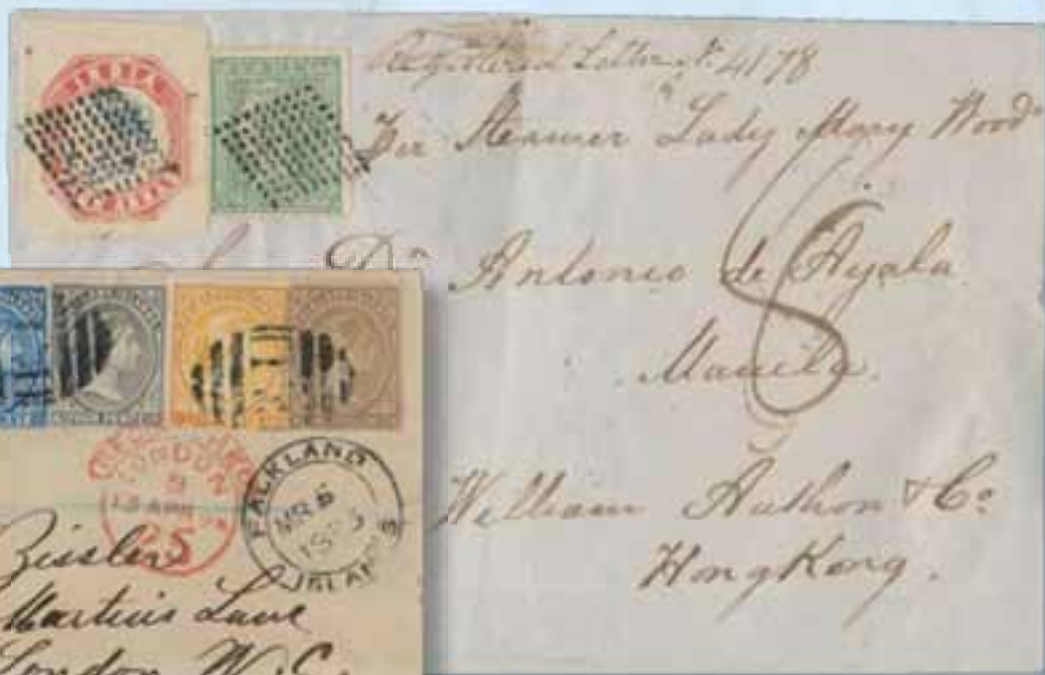 Registered Letter No. 4178
Per Steamer Lady Mary Wood
Dn Antonio de Ayala
Manila.
8
William Authon & Co
HongKong.
LONDON
FALKLAND
MR 6
ISLANDS
Martins Lane
London W.C.